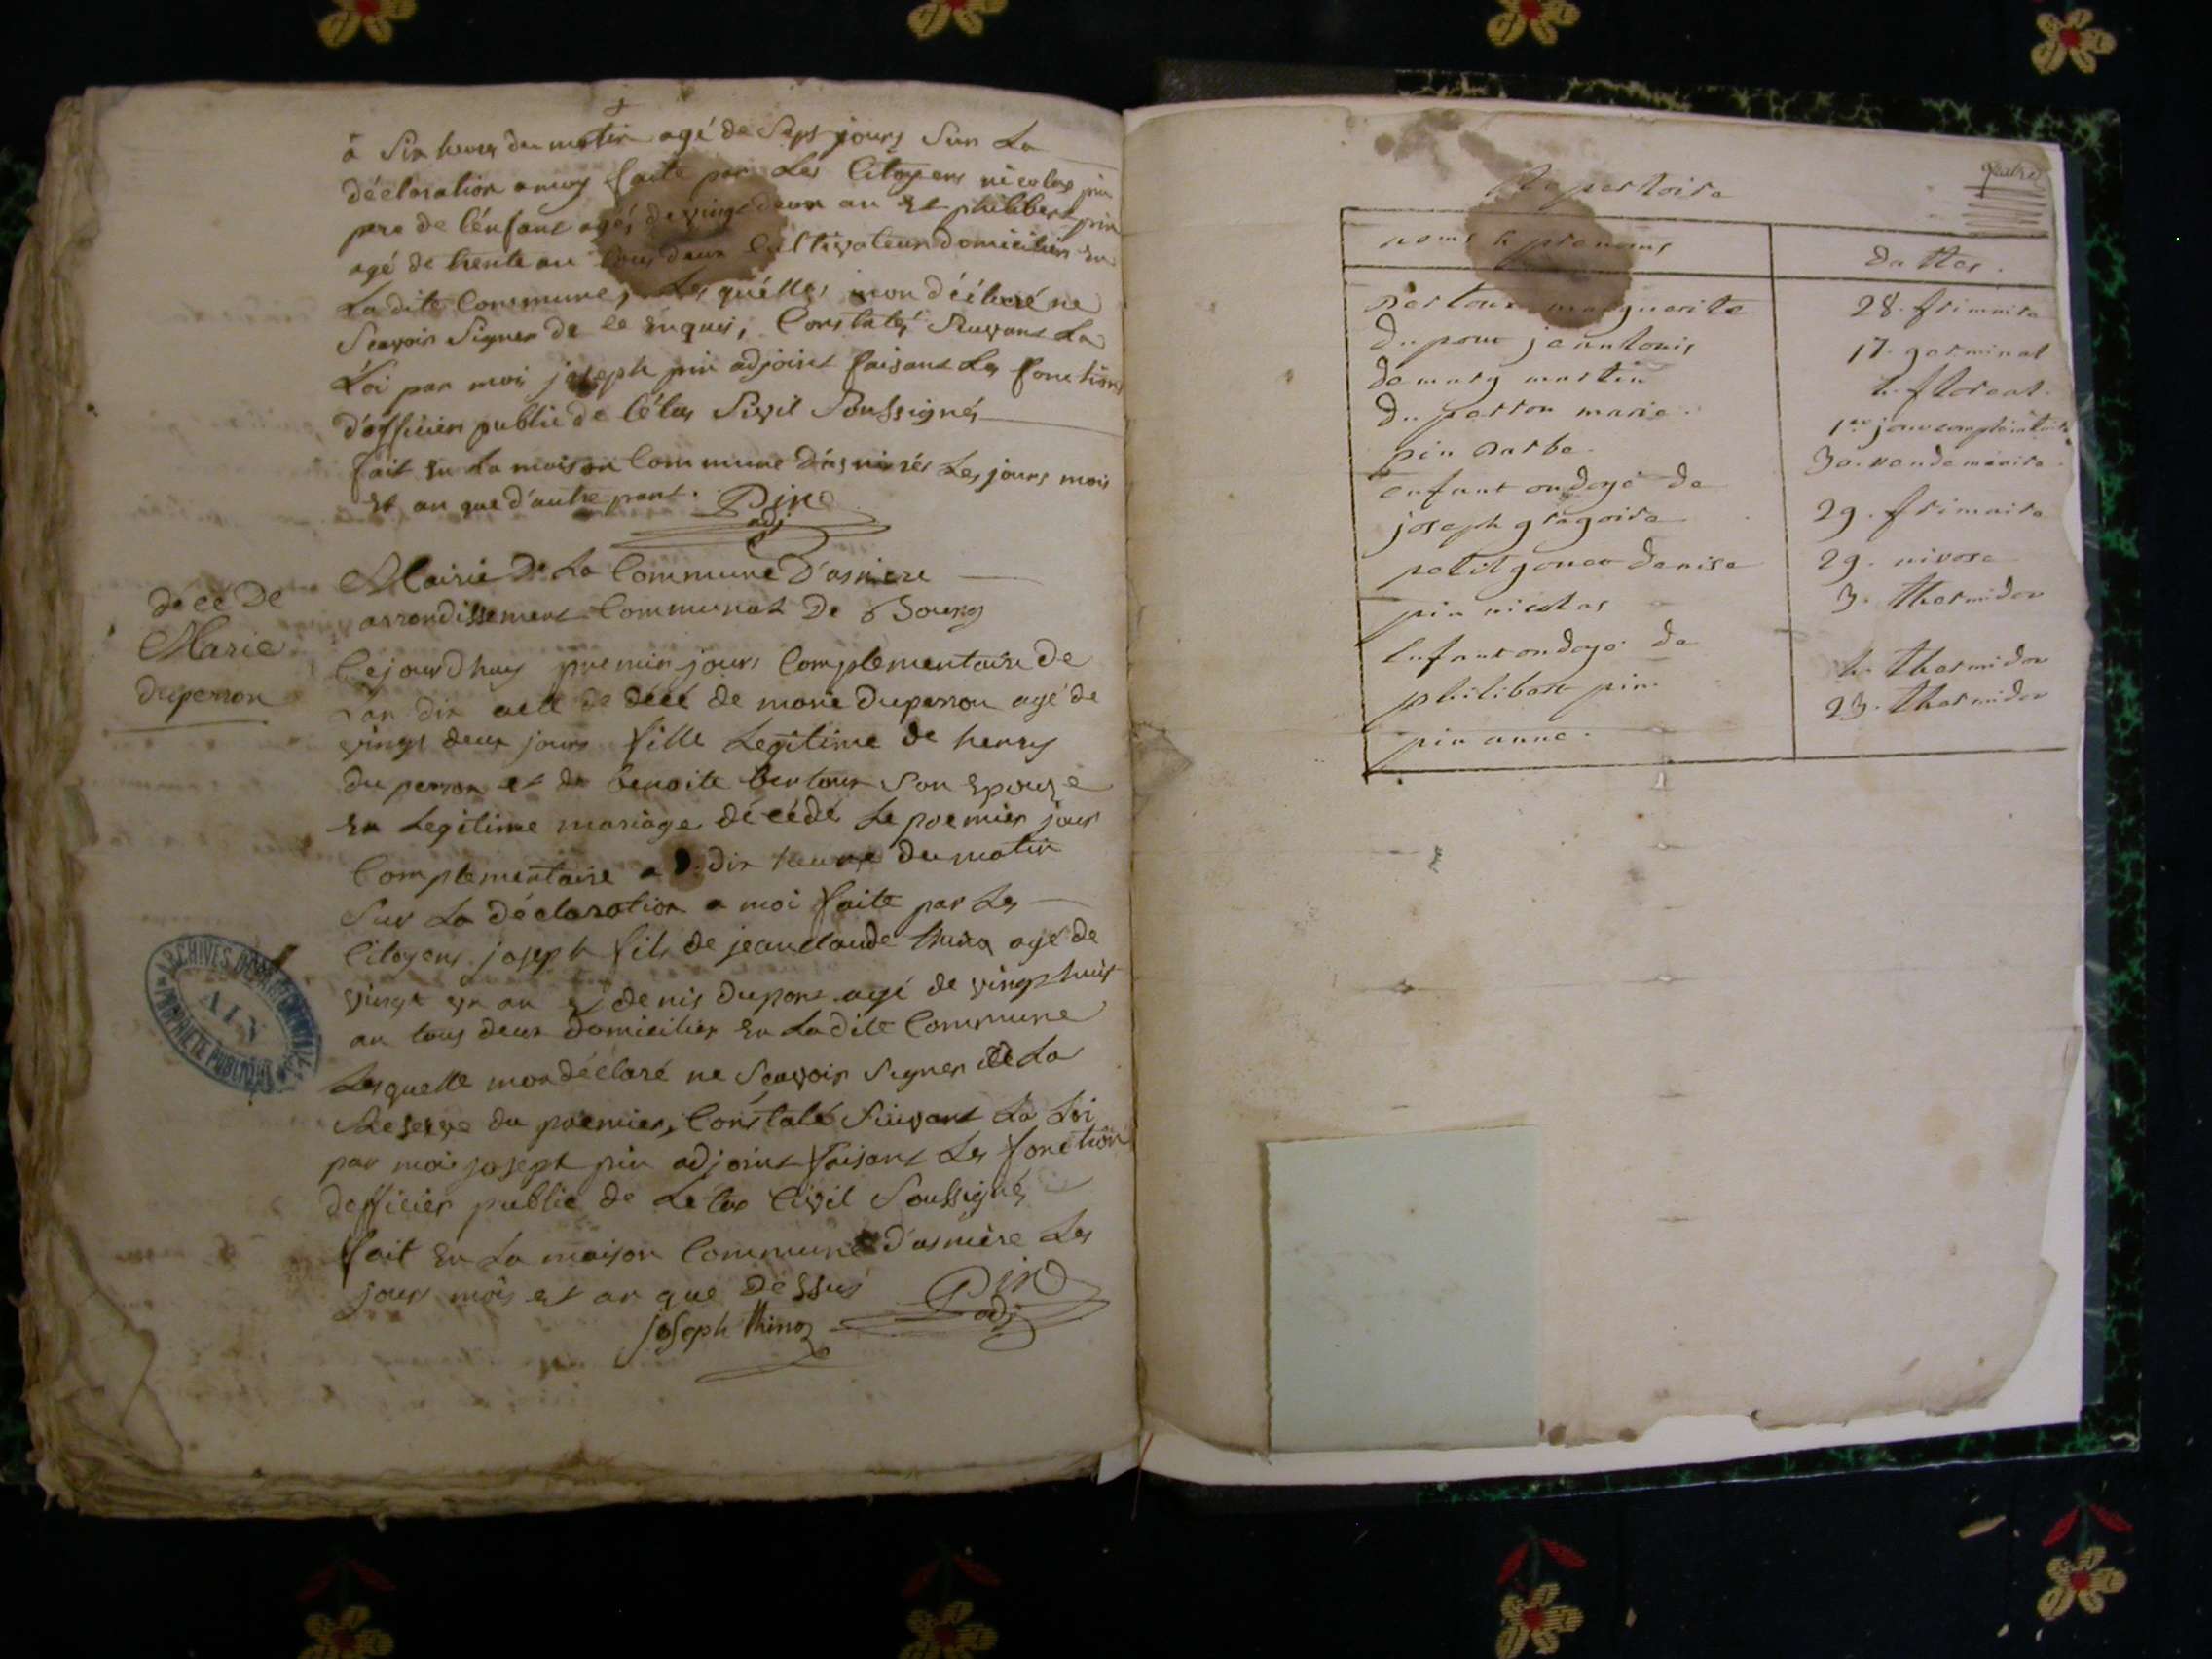 à Six heures du matin agé de Sept jours Sur La
déclaration a moy faite par Les Citoyens nicolas pin
pere de l'énfant agés de vingt deux an Et philibert pin
agé de trente an tous deux Cultivateurs domiciliés En
La dite Commune, Les quélles mon déclaré ne
Scavoir Signer de ce Enquis, Constaté Suivant La
Loi par moi joseph pin adjoint faisant Les fonctions
d'officier public de l'étas Sivil Soussignés
fait En La maison Commune d'asnieres Les jours mois
Et an que d'autre part. Pin
adj
décé De
Marie
duperron
Mairie De La Commune D'asniere
arrondissement Communal De Bourg
Cejourdhuy premier jours Complementaire de
l'an dix acte de décé de marie Duperron agé de
vingt deux jours fille Legitime de henry
du perron et de benoite bertoux Son Epouze
En Legitime mariage décédé Le premier jour
Complementaire a dix heure du matin
Sur La déclaration a moi faite par Les
Citoyens joseph fils de jean claude thinoz agé de
vingt un an Et denis dupont agé de vingt huit
an tous deux domiciliés En La dite Commune
Lesquelle mon déclaré ne Scavoir Signer à La
Reserve du premier, Constaté Suivant La Loi
par moi joseph pin adjoint faisant Les fonction
dofficier public de Létas Civil Soussigné
fait En La maison Commune d'asniere Les
jour mois et an que déssus
Pin
adj
joseph thinoz
ARCHIVES DÉPARTEMENTALES
AIN
PROPRIÉTÉ PUBLIQUE
quatre
Repertoire
noms & prenoms dattes.
Bertoux marguerite 28. frimaire
Dupont jean louis 17. germinal
Demurg martin 4. floreal.
Duperron marie. 1er jour complementaire
pin Barbe. 30. vendemiaire.
enfant ondoyé de
joseph gregoire 29. frimaire
petitgonet denise 29. nivose
pin nicolas 3. thermidor
Enfant ondoyé de
philibert pin 4. thermidor
pin anne. 23. thermidor